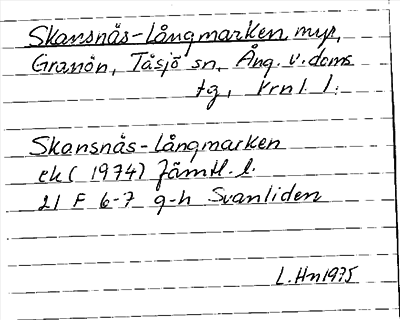 Skansnäs-Långmarken, myr,
Granön, Tåsjö sn, Ång. v. doms
tg, Vrnl. l.
Skansnäs-Långmarken
ek (1974) Jämtl. l.
21 F 6-7 g-h Svanliden
L. Hn 1975